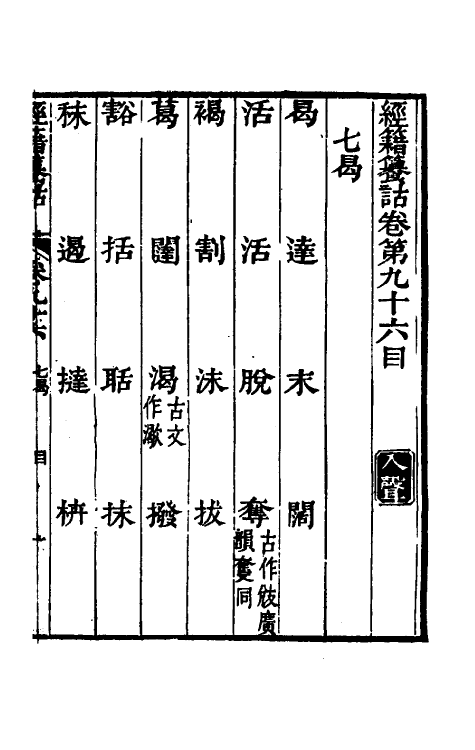 經籍籑詁卷第九十六目
入聲
七曷
曷 達 末 闊
活 活 脫 奪古作敓廣韻奪同
褐 割 沫 拔
葛 闥 渴古文作㵣 撥
豁 括 聒 抹
秣 遏 撻 枿
經籍籑詁 卷九十六 七曷 目 一